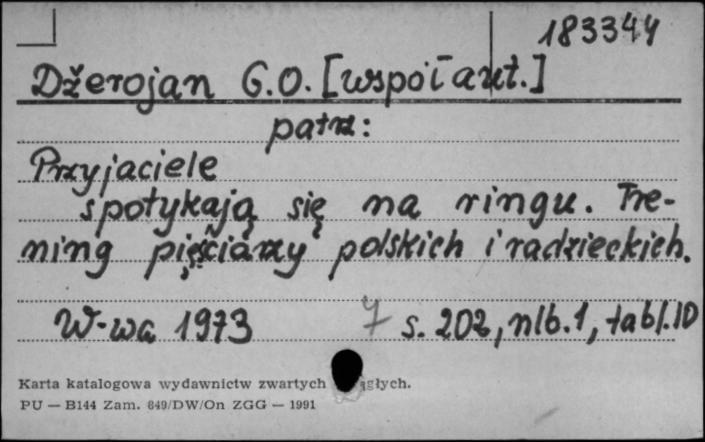 183344
Dżerojan G.O. [współaut.]
patrz:
Przyjaciele
spotykają się na ringu. Tre-
ning pięściarzy polskich i radzieckich.
W-wa 1973 7 s. 202, nlb. 1, tabl. 10
Karta katalogowa wydawnictw zwartych głych.
PU — B144 Zam. 649/DW/On ZGG — 1991